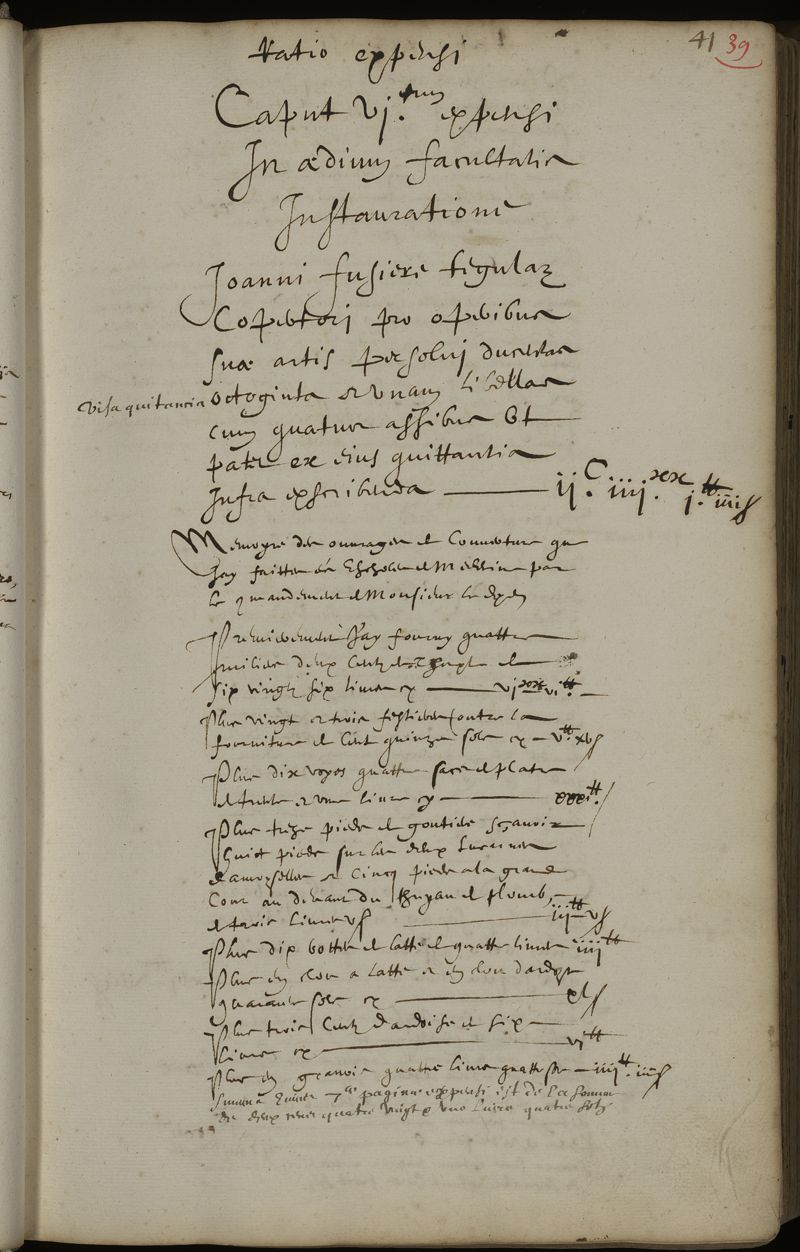 41 39
Ratio expensi
Caput vj.tum expensi
In ædium facultatis
Instauratione
Joanni fusiere tegularz
Copertorj pro operibus
suæ artis persolvj ducentas
Visa quitancia octoginta et unam libellas
cum quatuor assibus Ut
patet ex eius quittantia
infra exscribenda ij.C iiij.xx j.tt iiijs
Memoyre des ouvrages de Couverture que
Jay faittes es Escholes de Medecine par
le commandement de Monsieur le doyen
Premierement Jay fourny quattre
milliers deux cents de
six vingts six livres cy vjxx vjtt
Plus vingt et trois festieres outre la
fourniture de cent quinze sols cy vtt xvs
Plus dix voyes quattre sacs de platre
de trente et une livres cy xxxitt
Plus treze pieds de goutiere sçavoir
huict pieds sur les deux Lucarnes
et cinq pieds a la grand
Cour au devant du thuyau de plomb
de trois livres vs iijtt vs
Plus dix bottes de latte de quattre livres iiijtt
Plus en clou a latte et en clou dardoyse
quarante sols cy xls
Plus trois cents dardoise de six
livres cy vjtt
Plus en quattre livres quattre s iiijtt iiijs
Summa huius 7æ paginæ expensi est de la somme
de deux cens quatre vingt une livre quatre sols